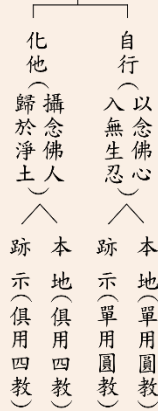 自行（以念佛心入無生忍）
本地（單用圓教）
跡示（單用圓教）
化他（攝念佛人歸於淨土）
本地（俱用四教）
跡示（俱用四教）